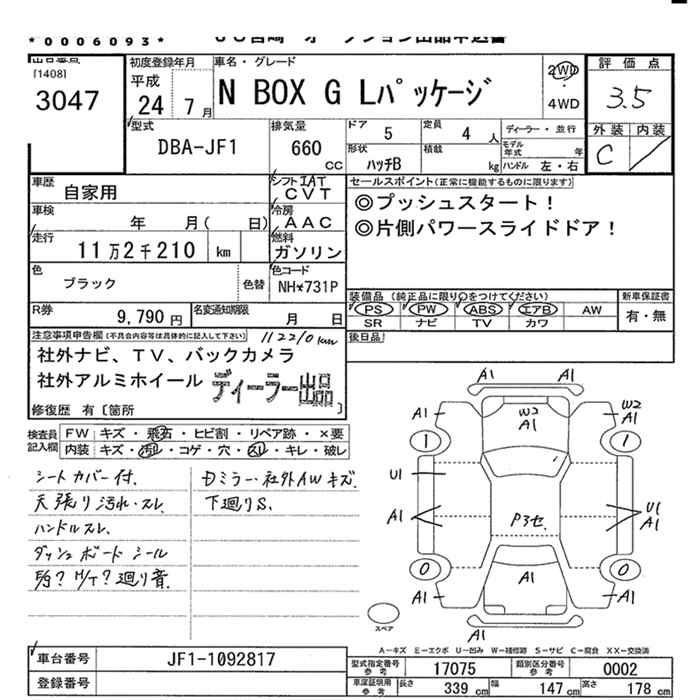 *0006093*
[1408]
3047
初度登録年月
平成
24 7月
車名・グレード
N BOX G Lパッケージ
2WD
・
4WD
評価点
3.5
外装 内装
C
型式
DBA-JF1
排気量
660
CC
ドア 5
定員 4 人
形状 ハッチB
積載 kg
ディーラー・並行
モデル年式 年
ハンドル 左・右
車歴
自家用
シフト IAT
CVT
車検
年 月( 日)
冷房
AAC
走行
11万2千210 km
燃料
ガソリン
色
ブラック
色替
色コード
NH*731P
R券
9,790円
名変通知期限
月 日
セールスポイント(正常に機能するものに限ります)
◎プッシュスタート!
◎片側パワースライドドア!
装備品(純正品に限り○をつけてください)
PS PW ABS エアB AW
SR ナビ TV カワ
新車保証書
有・無
後日品
注意事項申告欄(不具合内容等は具体的に記入して下さい)
112210km
社外ナビ、TV、バックカメラ
社外アルミホイール
ディーラー出品
修復歴 有〔箇所
検査員記入欄
FW キズ・飛石・ヒビ割・リペア跡・×要
内装 キズ・汚れ・コゲ・穴・スレ・キレ・破レ
シートカバー付.
天張り汚れ・スレ
ハンドルスレ.
ダッシュボードシール
廻り音.
ミラー・社外AWキズ.
下廻りS.
A1 A1
A1 W2 A1 W2 A1
1 1
U1
A1 U1 A1
P3セ
0 0
A1 A1 A1
A1
スペア
A-キズ E-エクボ U-凹み W-補修跡 S-サビ C-腐食 XX-交換済
車台番号
JF1-1092817
登録番号
型式指定番号参考 17075
類別区分番号参考 0002
車庫証明用参考 長さ 339 cm 幅 147 cm 高さ 178 cm